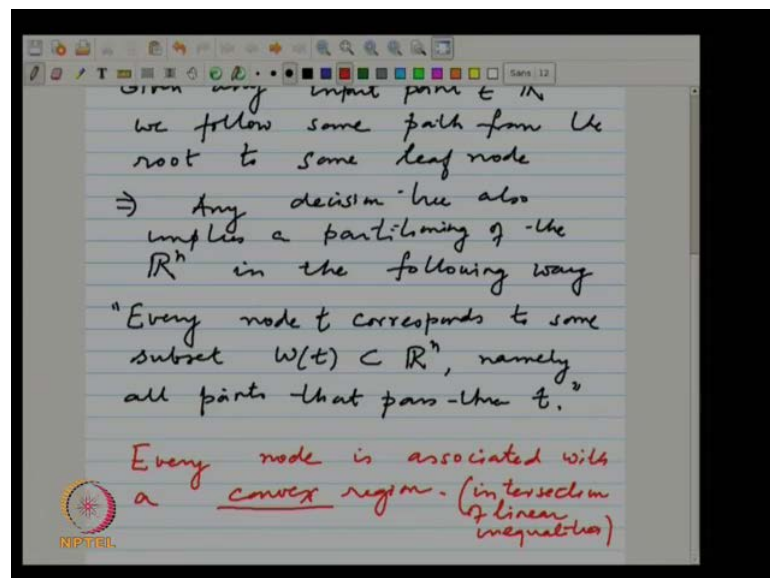 Sans 12
Given any input point ∈ ℝ
we follow some path from the
root to some leaf node
⇒ Any decision tree also
implies a partitioning of the
ℝⁿ in the following way
"Every node t corresponds to some
subset W(t) ⊂ ℝⁿ, namely
all points that pass thru t."
Every node is associated with
a convex region. (intersection
of linear
inequalities)
NPTEL